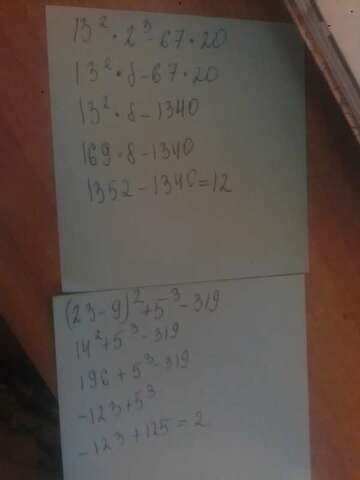 13² · 2³ - 67 · 20
13² · 8 - 67 · 20
13² · 8 - 1340
169 · 8 - 1340
1352 - 1340 = 12
(23 - 9)² + 5³ - 319
14² + 5³ - 319
196 + 5³ - 319
-123 + 5³
-123 + 125 = 2